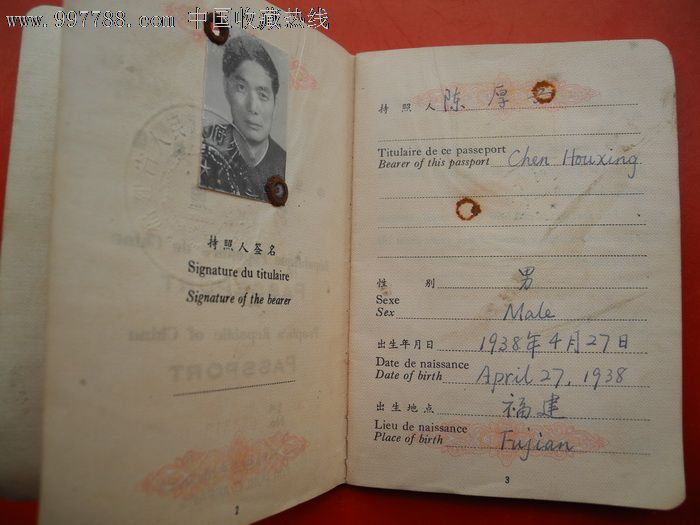 www.997788.com 中国收藏热线
持照人签名
Signature du titulaire
Signature of the bearer
2
持照人 陈厚
Titulaire de ce passeport
Bearer of this passport Chen Houxing
性别 男
Sexe
Sex Male
出生年月日 1938年4月27日
Date de naissance
Date of birth April 27, 1938
出生地点 福建
Lieu de naissance
Place of birth Fujian
3